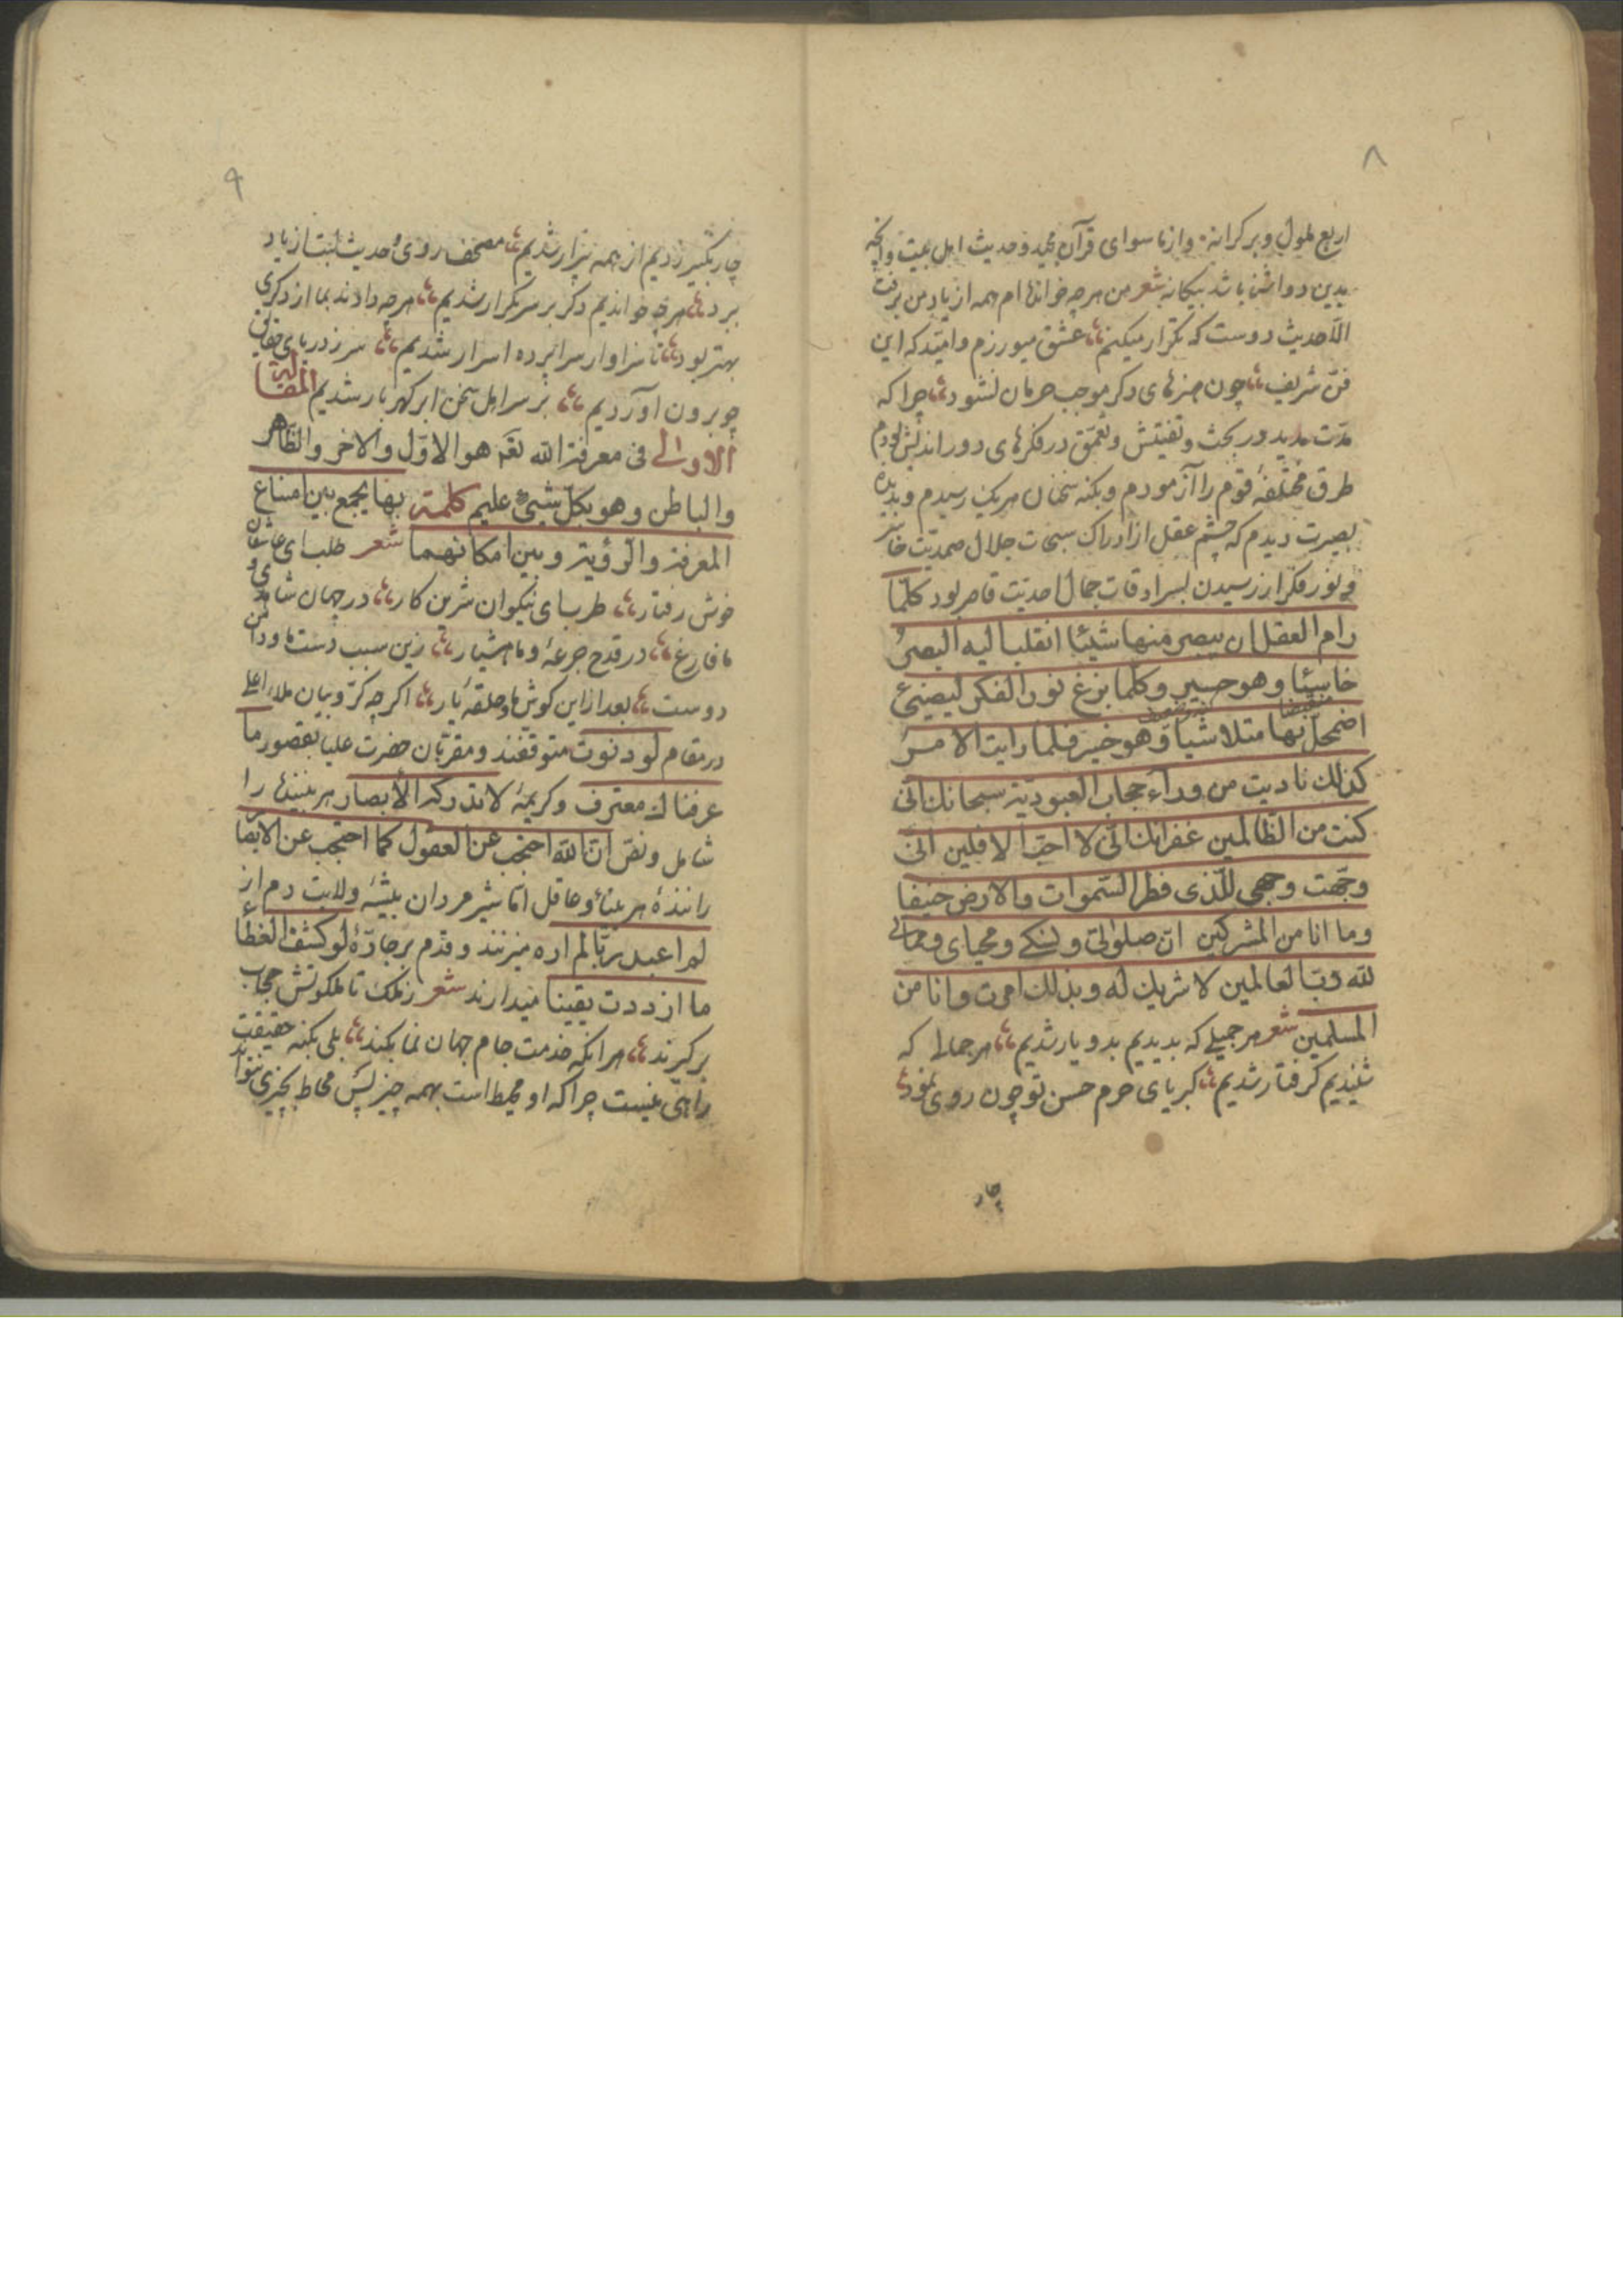 ۸
اربع ملول و بر کرانه وازما سوای قرآن مجید و حدیث اهل بیت وانچه
بدین دو اشنا باشد بیکانه شعر من هرچه خوانده‌ام همه از یاد من برفت
الا حدیث دوست که تکرار میکنم عشق میورزم و امید که این
فن شریف چون هنرهای دکر موجب حرمان نشود چرا که
مدت مدید در بحث و تفتیش و تعمق در فکرهای دور اندیش بودم
طرق مختلفهٔ قوم را آزمودم و بکنه سخنان هر یک رسیدم و بدیده
بصیرت دیدم که چشم عقل از ادراک سبحات جلال صمدیت خاسر
و نور فکر از رسیدن بسرادقات جمال احدیت قاصر بود کلما
رام العقل ان یبصر منها شیئا انقلب الیه البصر
خاسئا و هو حسیر و کلما بزغ نور الفکر لیضیئ
اضمحل بها متلاشیا و هو فلما رایت الامر
کذلک نادیت من وراء حجاب العبودیة سبحانک انی
کنت من الظالمین غفرانک انی لا احب الافلین انی
وجهت وجهی للذی فطر السموات والارض حنیفا
و ما انا من المشرکین ان صلوتی و نسکی و محیای و مماتی
لله رب العالمین لا شریک له و بذلک امرت و انا من
المسلمین شعر هر جمیلی که بدیدیم بدو یار شدیم هر جمالی که
شنیدیم کرفتار شدیم کبریای حرم حسن تو چون روی نمود
چار
۹
چار تکبیر زدیم از همه بیزار شدیم مصحف روی و حدیث لبت از یاد
برد هرچه خواندیم دکر بر سر تکرار شدیم هرچه دادند بما از دکری
بهتر بود تا سزاوار سراپرده اسرار شدیم سر ز دریای حقایق
چو برون آوردیم بر سر اهل سخن ابر کهربار شدیم المقالة
الاولی فی معرفة الله تعه هو الاول والاخر والظاهر
والباطن و هو بکل شیئ علیم کلمة بها یجمع بین امتناع
المعرفة والرؤیة و بین امکانهما شعر طلب ای عاشقان
خوش رفتار طرب ای نیکوان شرین کار در جهان شاهدی و
ما فارغ در قدح جرعهٔ و ما هشیار زین سبب دست ما و دامن
دوست بعد ازاین کوش ما و حلقهٔ یار اکرچه کروبیان ملاء اعلی
در مقام لو دنوت متوقفند و مقربان حضرت علیا بقصور ما
عرفناک معترف و کریمهٔ لا تدرکه الابصار هر بیننده را
شامل و نص ان الله احتجب عن العقول کما احتجب عن الابصا
رانندهٔ هر بینا و عاقل اما شیر مردان بیشهٔ ولایت دم از
لم اعبد ربا لم اره میزنند و قدم بر جادهٔ لو کشف الغطاء
ما ازددت یقینا میدارند شعر ز ملک تا ملکوتش حجاب
برکیرند هر انکه خدمت جام جهان نما بکند بلی بکنه حقیقت
راهی نیست چرا که او محیط است بهمه چیز پس محاط بچیزی نتواند